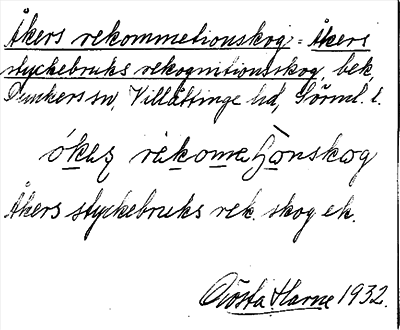 Åkers rekommetionskog = Åkers
styckebruks rekognitionsskog, bek,
Dunkers sn, Villåttinge hd, Södml. l.
åkaṣ rekome ʃonskog
Åkers styckebruks rek. skog ek.
Gösta Harne 1932.